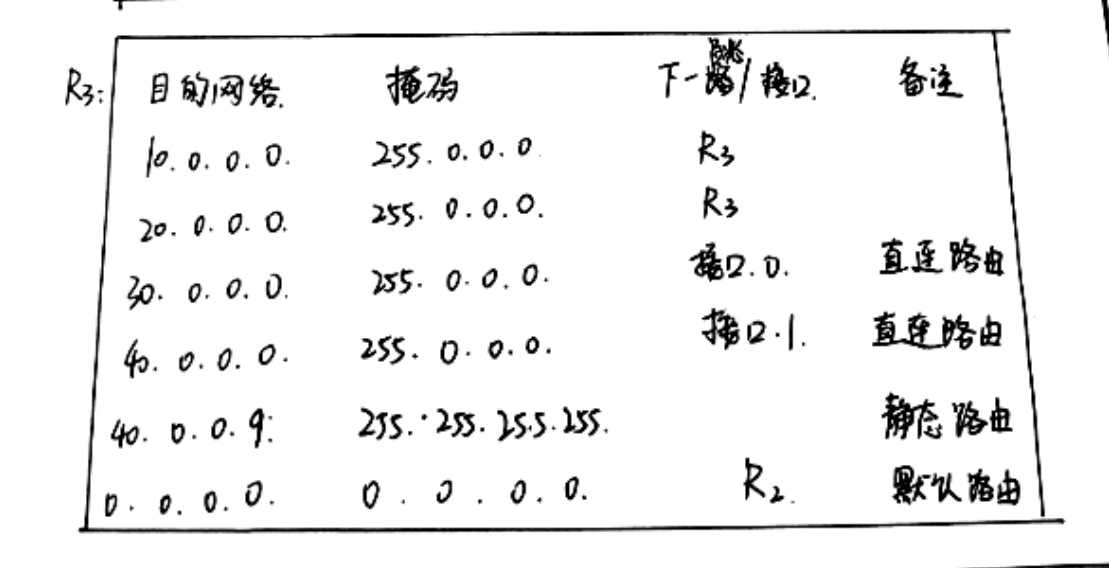 R3: 目的网络. 掩码 下一跳/接口. 备注
10.0.0.0. 255.0.0.0. R3
20.0.0.0. 255.0.0.0. R3
30.0.0.0. 255.0.0.0. 接口.0. 直连路由
40.0.0.0. 255.0.0.0. 接口.1. 直连路由
40.0.0.9. 255.255.255.255. 静态路由
0.0.0.0. 0.0.0.0. R2. 默认路由